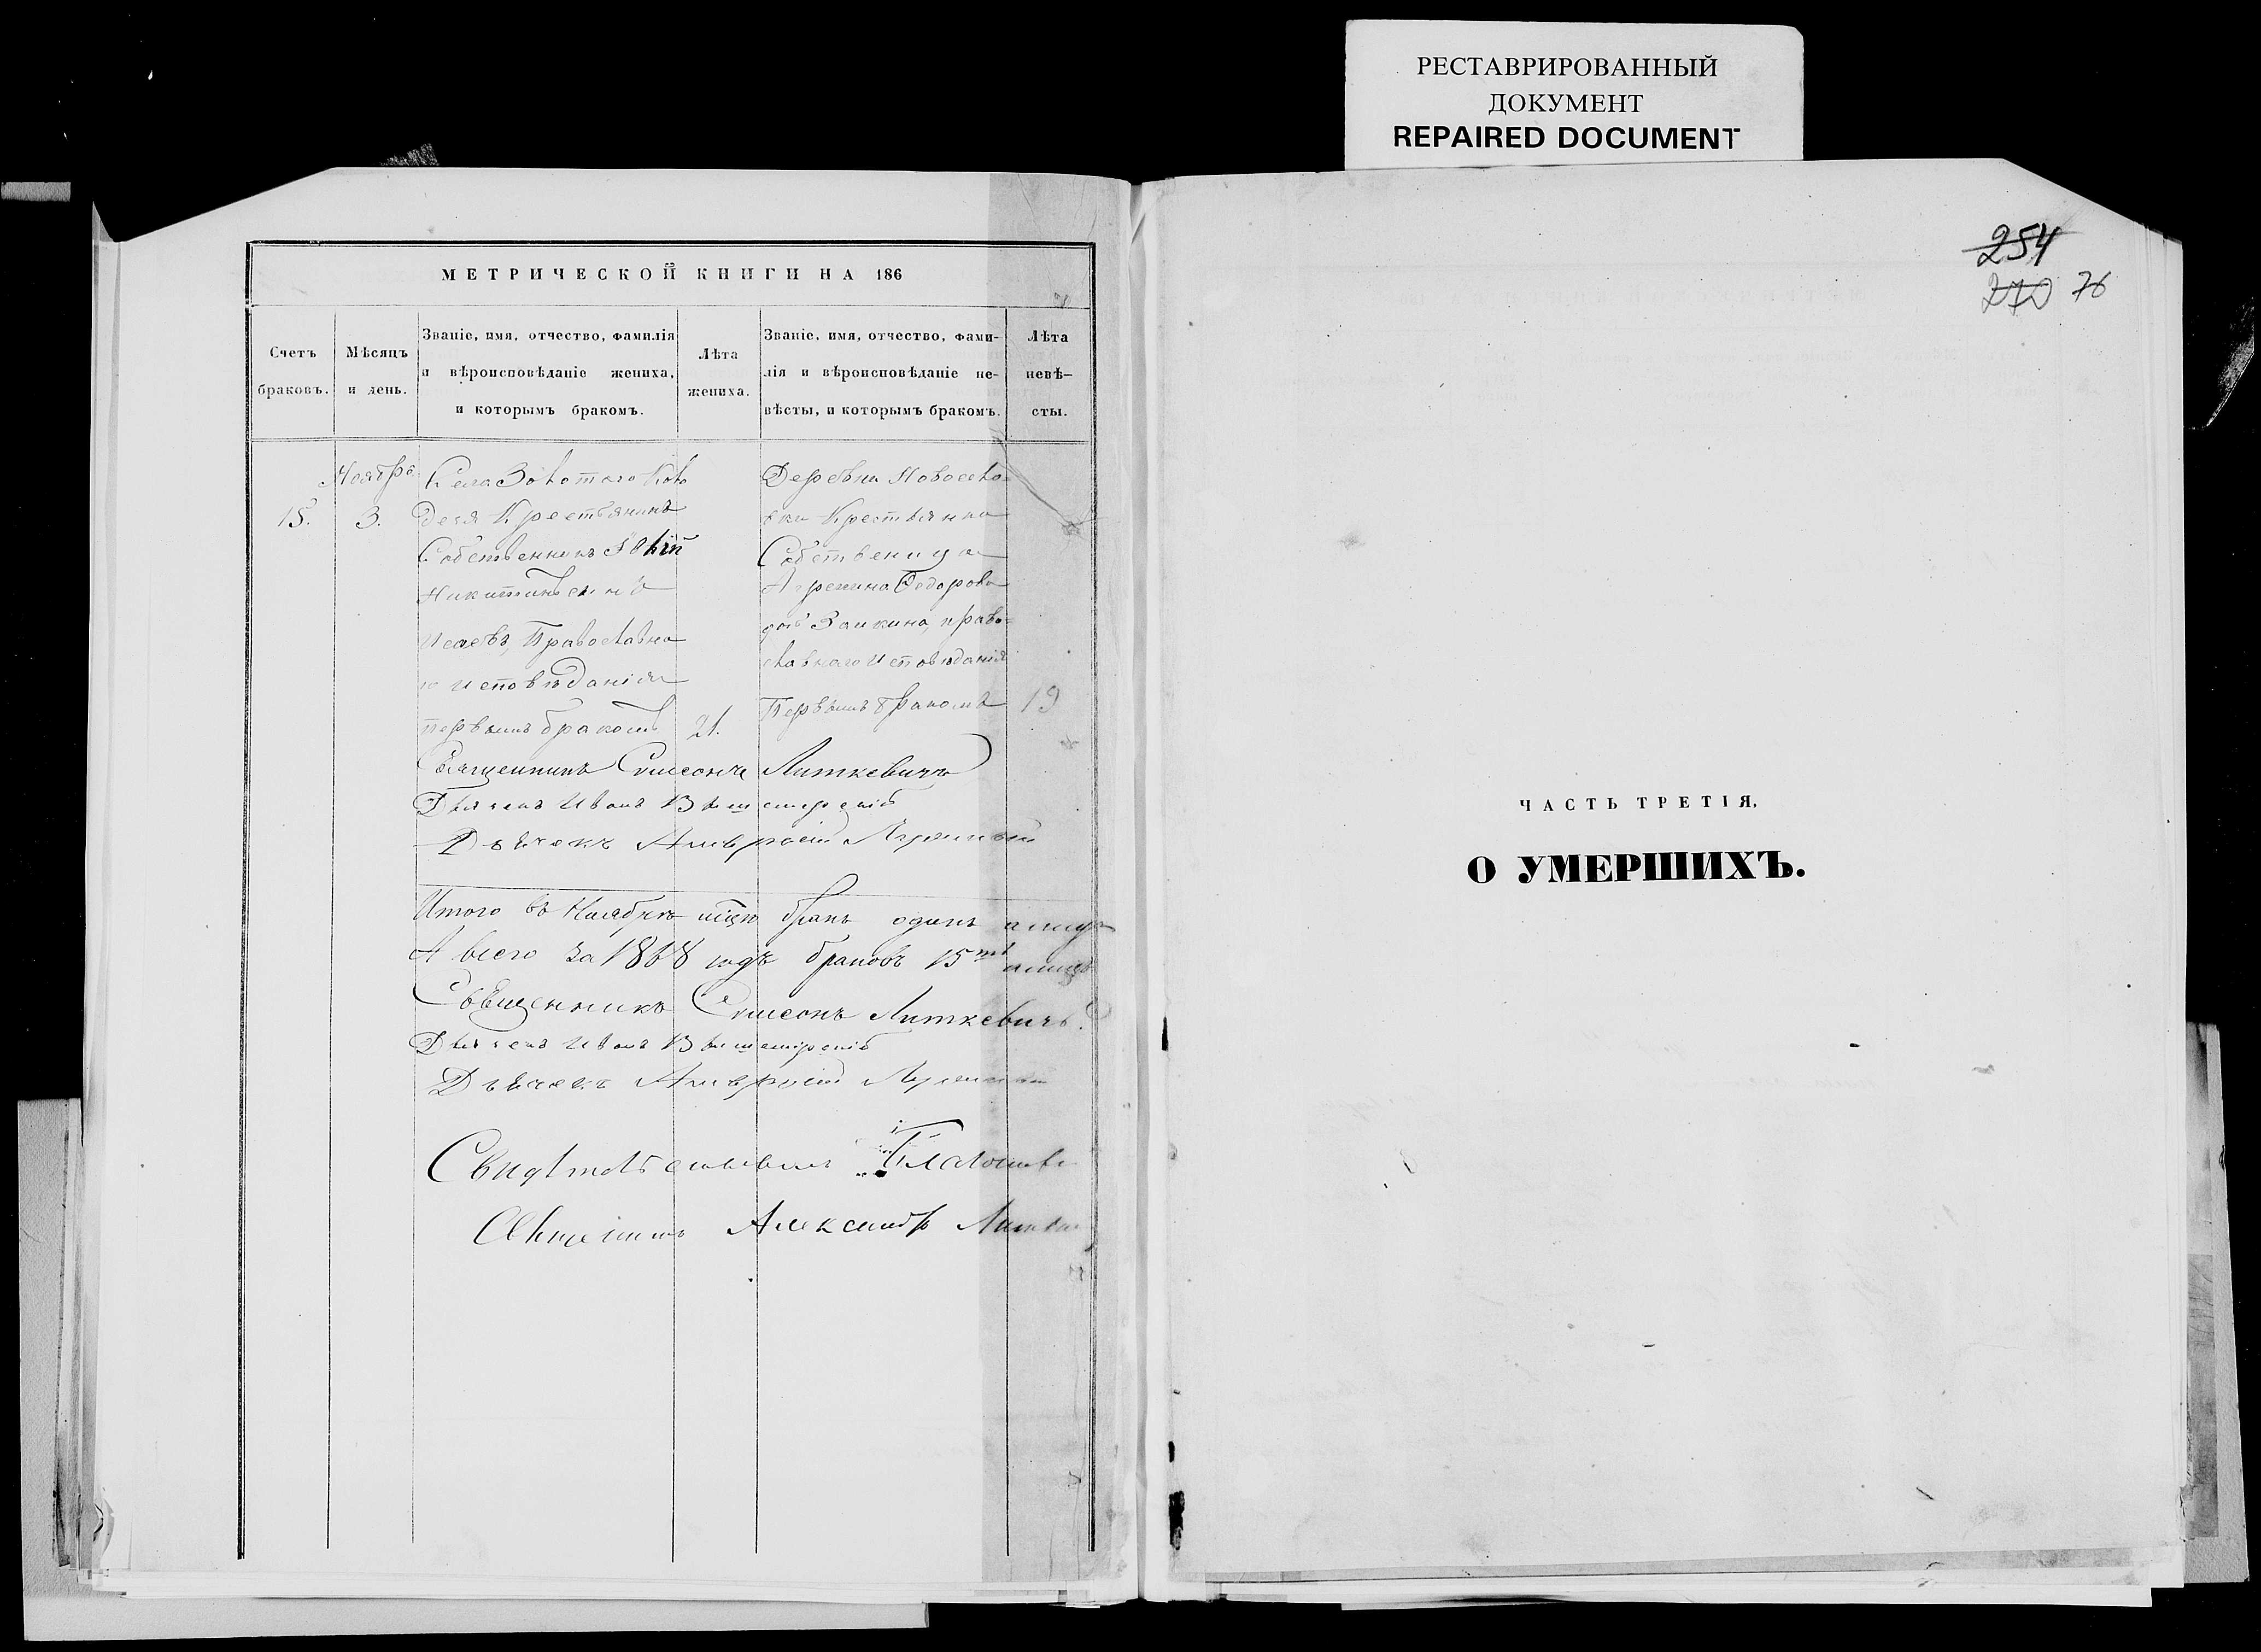 РЕСТАВРИРОВАННЫЙ
ДОКУМЕНТ
REPAIRED DOCUMENT
МЕТРИЧЕСКОЙ КНИГИ НА 186
Счетъ
браковъ.
Мѣсяцъ
и день.
Званіе, имя, отчество, фамилія
и вѣроисповѣданіе жениха,
и которымъ бракомъ.
Лѣта
жениха.
Званіе, имя, отчество, фами-
лія и вѣроисповѣданіе не-
вѣсты, и которымъ бракомъ.
Лѣта
невѣ-
сты.
Ноября
15.
3.
Села Золотаго Коло
дезя Крестьянинъ
Собственникъ
Исаевъ, Православна
го исповѣданія
первымъ бракомъ
21.
Деревни Новосело=
вки Крестьянка
Собственица
Федорова
дочь Заикина, право=
славнаго исповѣданія
Первымъ бракомъ
19
Священникъ Симеонъ Литкевичъ
Дьячекъ Иванъ
Дьячекъ Амвросій
Итого въ Ноябрѣ мѣцѣ бракъ одинъ
А всего за 1868 годъ браковъ 15
Священникъ Симеонъ Литкевичъ.
Дьячекъ Иванъ
Дьячекъ Амвросій
Александръ
254
270 76
ЧАСТЬ ТРЕТІЯ,
О УМЕРШИХЪ.